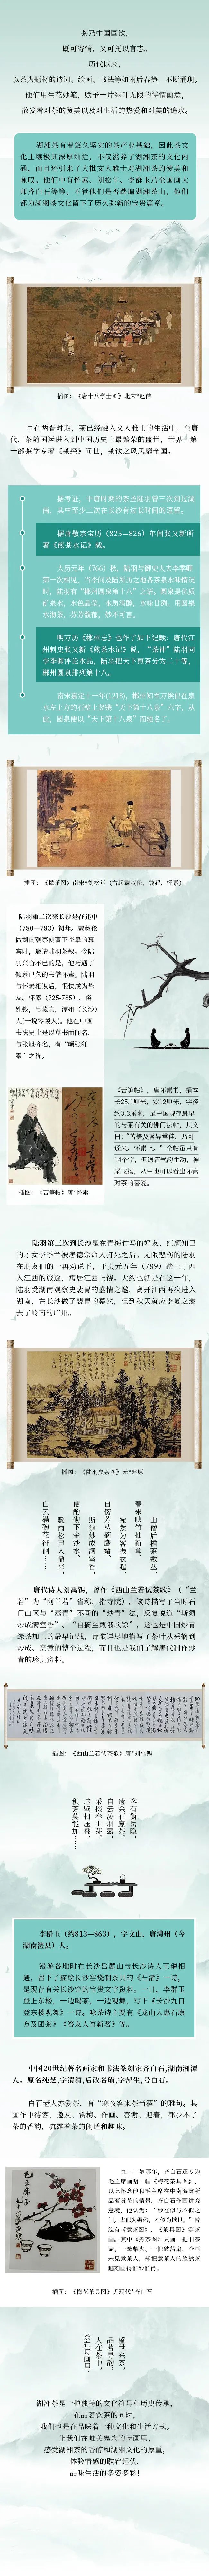 茶乃中国国饮,
既可寄情，又可托以言志。
历代以来，
以茶为题材的诗词、绘画、书法等如雨后春笋，不断涌现。
他们用生花妙笔，赋予一片绿叶无限的诗情画意，
散发着对茶的赞美以及对生活的热爱和对美的追求。
湖湘茶有着悠久坚实的茶产业基础，因此茶文
化土壤极其深厚灿烂，不仅滋养了湖湘茶的文化内
涵，而且还引来了大批文人雅士对湖湘茶的赞美和
咏叹。他们中有怀素、刘松年、李群玉乃至国画大
师齐白石等等。不管他们是否踏遍湖湘茶山，他们
都为湖湘茶文化留下了历久弥新的宝贵篇章。
插图：《唐十八学士图》北宋*赵佶
早在两晋时期，茶已经融入文人雅士的生活中。至唐
代，茶随国运进入到中国历史上最繁荣的盛世，世界上第
一部茶学专著《茶经》问世，茶饮之风风靡全国。
据考证，中唐时期的茶圣陆羽曾三次到过湖
南，其中至少二次在长沙有过长时间的逗留。
据唐敬宗宝历（825—826）年间张又新所
著《煎茶水记》载。
大历元年（766）秋，陆羽与御史大夫李季卿
第一次相见，当李问及陆所历之地各茶泉水味情况
时，陆羽有“郴州圆泉第十八”之语。圆泉是优质
矿泉水，水色晶莹，水质清醇，水味甘冽。用圆泉
水泡茶，芬芳馥郁，妙不可言。
明万历《郴州志》也作了如下记载：唐代江
州刺史张又新《煎茶水记》说，“茶神”陆羽同
李季卿评论水品，陆羽把天下煎茶分为二十等，
郴州圆泉排列第十八。
南宋嘉定十一年(1218)，郴州知军万俟侣在泉
水左上方的石壁上竖镌“天下第十八泉”六字，从
此，圆泉便以“天下第十八泉”而驰名了。
插图：《撵茶图》南宋*刘松年（右起戴叔伦、钱起、怀素）
陆羽第二次来长沙是在建中
（780—783）初年。戴叔伦
做湖南观察使曹王李皋的幕
宾时，邀请陆羽茶叙。令陆
羽兴奋不已的是，他巧遇了
倾慕已久的书僧怀素。陆羽
与怀素相识后，很快成为挚
友。怀素（725-785），俗
姓钱，号藏真，潭州（长沙）
人(一说零陵人)。他在中国
书法史上是以草书而闻名，
与张旭齐名，有“颠张狂
素”之称。
插图：《苦笋帖》唐*怀素
《苦笋帖》，唐怀素书，绢本
长25.1厘米，宽12厘米，字径
约3.3厘米，是中国现存最早
的与茶有关的佛门法帖，其文
曰：“苦笋及茗异常佳，乃可
迳来。怀素上。”全帖虽只有
14个字，但通篇气韵生动，神
采飞扬，从中也可以看出怀素
对茶的喜爱。
陆羽第三次到长沙是在青梅竹马的好友、红颜知己
的才女李季兰被唐德宗命人打死之后。无限悲伤的陆羽
在朋友们的一再劝说下，于贞元五年（789）踏上了西
入江西的旅途，寓居江西上饶。大约也就是在这一年，
陆羽受湖南观察史裴胄的盛情之邀，离开江西再次进入
湖南，在长沙做了裴胄的幕宾，但到秋天就应李复之邀
去了岭南的广州。
插图：《陆羽烹茶图》元*赵原
山僧后檐茶数丛，
春来映竹抽新茸。
宛然为客振衣起，
自傍芳丛摘鹰觜。
斯须炒成满室香，
便酌砌下金沙水。
骤雨松声入鼎来，
白云满碗花徘徊……
唐代诗人刘禹锡，曾作《西山兰若试茶歌》（“兰
若”为“阿兰若”省称，指寺院）。该诗描写了当时石
门山区与“蒸青”不同的“炒青”法，反复说道“斯须
炒成满室香”、“自摘至煎俄顷馀”，这也是中国炒青
绿茶加工的最早记载，诗歌详尽地描写了茶叶从采摘到
炒成、烹煮的整个过程，而且也是我们了解唐代制作炒
青的珍贵资料。
插图：《西山兰若试茶歌》唐*刘禹锡
客有衡岳隐，
遗余石廪茶。
自云凌烟露，
采掇春山芽。
珪璧相压叠，
积芳莫能加……
李群玉（约813—863），字文山，唐澧州（今
湖南澧县）人。
漫游各地时在长沙岳麓山与长沙诗人王璘相
遇，留下了描绘长沙窑烧制茶具的《石渚》一诗，
是现存有关长沙窑的宝贵文字资料。一日，李群玉
登上东楼，一边喝茶，一边观舞，写下《长沙九日
登东楼观舞》一诗。咏茶诗主要有《龙山人惠石廪
方及团茶》《答友人寄新茗》等。
中国20世纪著名画家和书法篆刻家齐白石,湖南湘潭
人。原名纯芝,字渭清,后改名璜,字萍生,号白石。
白石老人亦爱茶，有“寒夜客来茶当酒”的雅句。其
画作中待客、邀友、赏梅、作画、答谢、迎春，都少不了
茶的香韵，流露着茶的闲适和趣味。
九十二岁那年，齐白石还专为
毛主席画赠一幅《梅花茶具图》，
以此怀念他和毛主席在中南海寓所
品茗赏花的情景。齐白石作画讲究
意境，他认为：“妙在似与不似之
间。太似为媚俗，不似为欺世。”曾
绘有《煮茶图》、《茶具图》等茶
画。其中《煮茶图》只画一把旧茶
壶、一篝柴火、一把破蒲扇。全画
未见煮茶人，却把煮茶人的悠然茶
趣刻画得惟妙惟肖。
插图：《梅花茶具图》近现代*齐白石
盛世兴茶，
品茗寻韵，
人在茶中，
茶在诗画里。
湖湘茶是一种独特的文化符号和历史传承，
在品茗饮茶的同时，
我们也是在品味着一种文化和生活方式。
让我们在唯美隽永的诗画里，
感受湖湘茶的香醇和湖湘文化的厚重，
体验情感的跌宕起伏，
品味生活的多姿多彩！